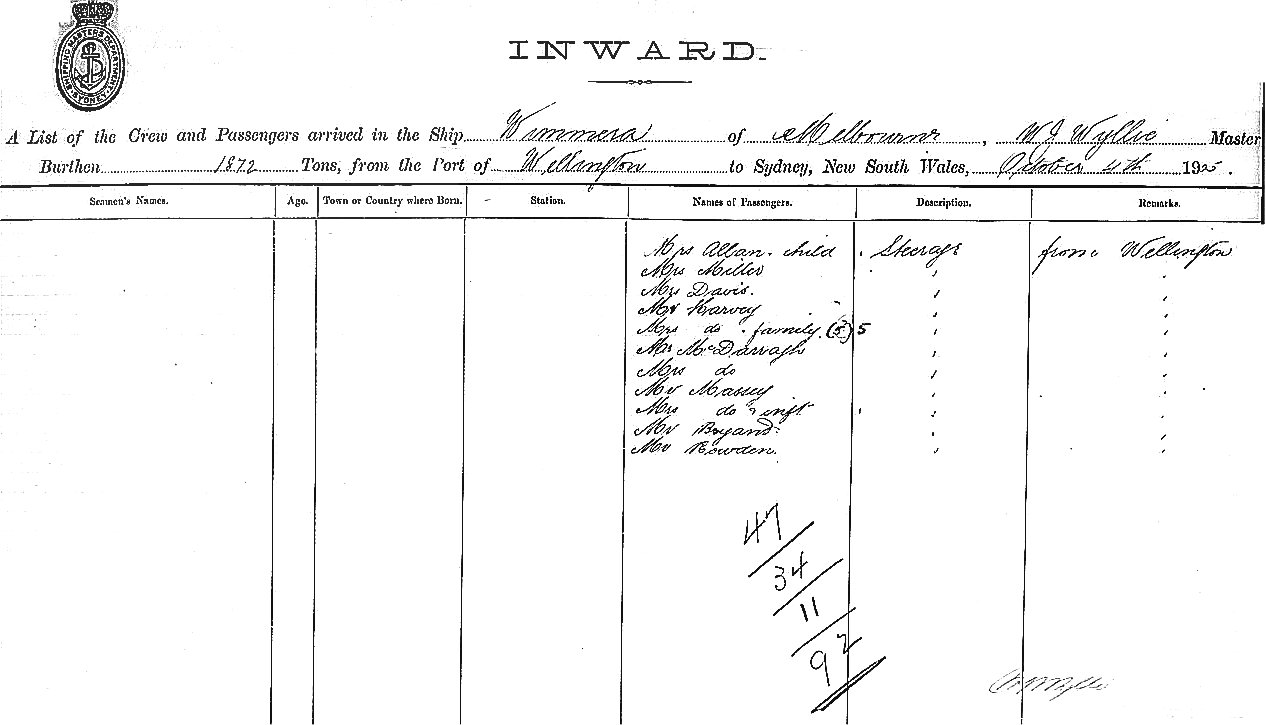 SHIPPING MASTERS DEPARTMENT SYDNEY
INWARD.
A List of the Crew and Passengers arrived in the Ship Wimmera of Melbourne, W J Wyllie Master
Burthen 1872 Tons, from the Port of Wellington to Sydney, New South Wales, October 4th 19
Seamen's Names. Age. Town or Country where Born. Station. Names of Passengers. Description. Remarks.
Mrs Allan. child Steerage from Wellington
Mrs Miller " "
Mrs Davis. " "
Mr Harvey " "
Mrs do . family. (5) 5 " "
Mr McDarragh " "
Mrs do " "
Mr Massey " "
Mrs do & inft " "
Mr " "
Mr Rowden. " "
47
34
11
92